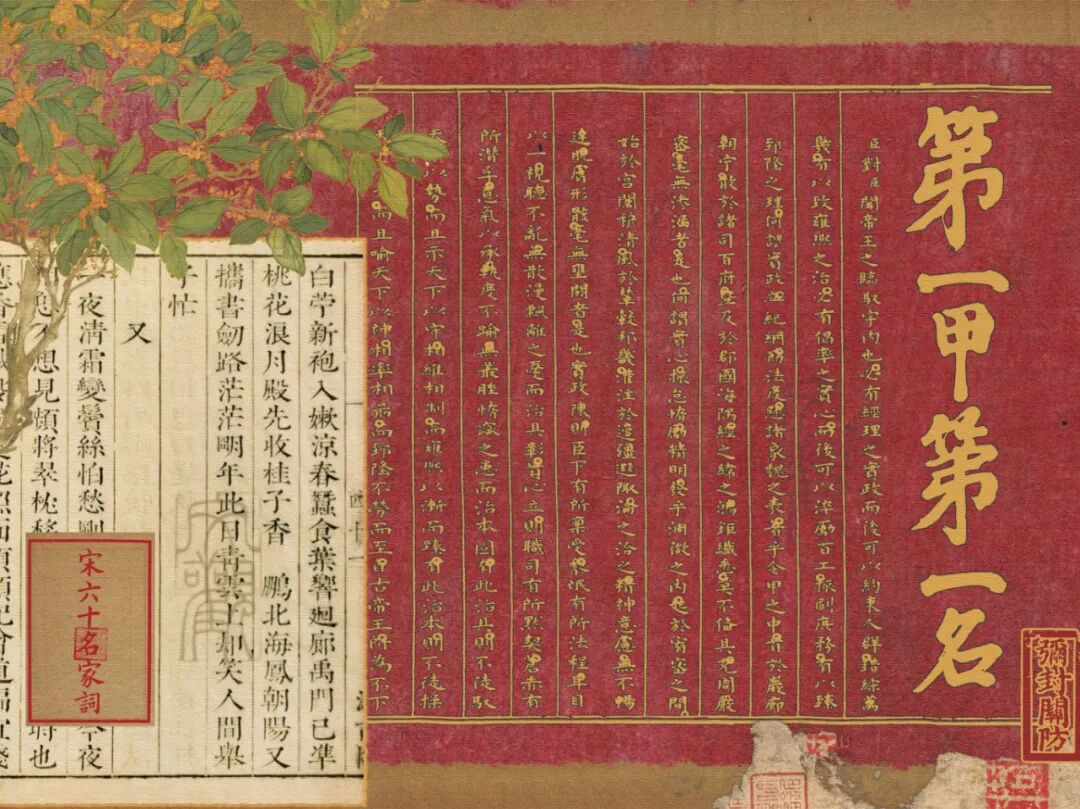 第一甲第一名
彌封關防
臣對臣聞帝王之臨馭宇內也必有經理之實政而後可以約束人群錯綜萬
幾有以致雍熙之治必有倡率之實心而後可以淬厲百工振刷庶務有以臻
郅隆之理何謂實政立紀綱飭法度懸諸象魏之表著乎令甲之中首於巖廊
朝宁散於諸司百府暨及於郡國海隅經之緯之鴻鉅纖悉莫不備具充周嚴
密毫無滲漏者是也何謂實心振怠惰勵精明發乎淵微之內起於宥密之間
始於宮闈穆清風於輦轂邦畿灌注於邊疆遐陬淪之洽之精神意慮無不暢
達肌膚形骸毫無壅閼者是也實政陳則臣下有所稟受黎氓有所法程耳目
以一視聽不亂無散漫飄離之憂而治具彰實心立則職司有所默契蒼赤有
所潛孚意氣以承軌度不踰無叢脞惰窳之患而治本固有此治具則不徒馭
以勢而且示天下以守相維相制而雍熙以漸而臻有此治本則不徒操
而且喻天下以神相率相勖而郅隆不勞而至自古帝王所為不下
白苧新袍入嫩涼春蠶食葉響迴廊禹門已準
桃花浪月殿先收桂子香　鵬北海鳳朝陽又
攜書劒路茫茫明年此日青雲上却笑人間舉
子忙
又
夜清霜變鬢絲怕愁剛 今夜
想見頻將翠枕移 時也
花照面頻頻記會道福宜淺
宋六十名家詞